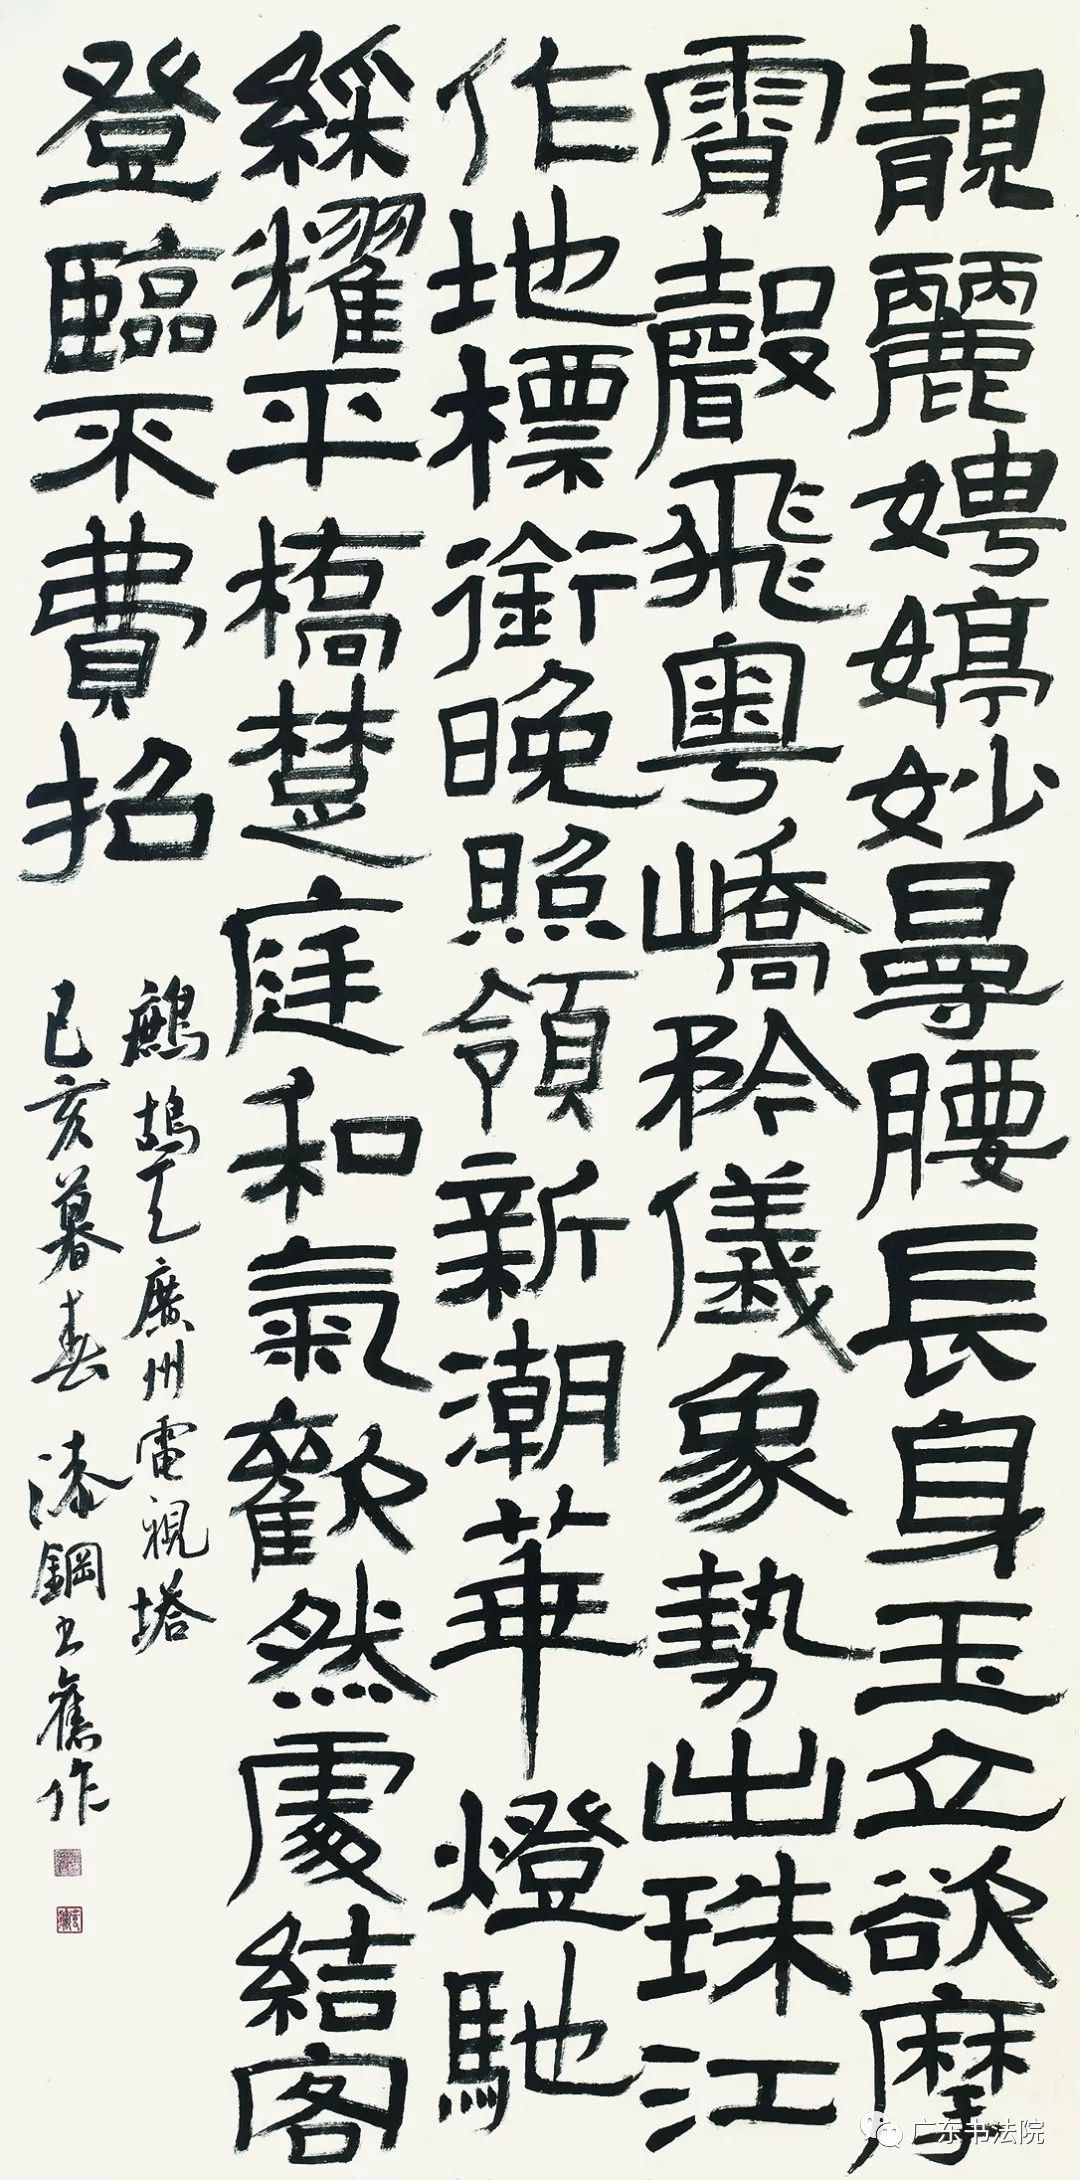 靚麗娉婷妙曼腰長身玉立欲摩
霄聲飛粵嶠矜儀象勢出珠江
作地標銜晚照領新潮華燈馳
綵耀平橋楚庭和氣歡然處結客
登臨不費招
鷓鴣天廣州電視塔
己亥暮春漆鋼书舊作
广东书法院